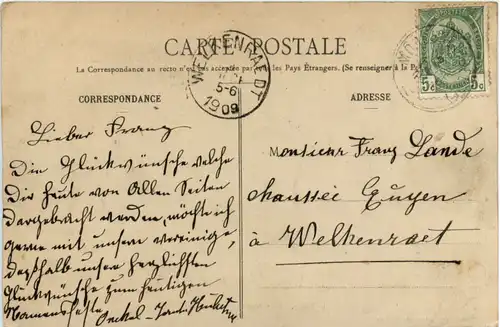 CARTE POSTALE
La Correspondance au recto n'est pas acceptée par les Pays Étrangers. (Se renseigner à la
CORRESPONDANCE
ADRESSE
WELKENRAEDT
5-6
1909
5c 5c
Lieber Franz
Die Glückwünsche welche
Dir heute von Allen Seiten
dargebracht werden, möchte ich
gerne mit unsern vereinige,
deßhalb unsere herzlichsten
Glückwünsche zum heutigen
Namensfeste
Onckel - Tante
Monsieur Franz Lande
chaussée Eupen
à Welkenraet